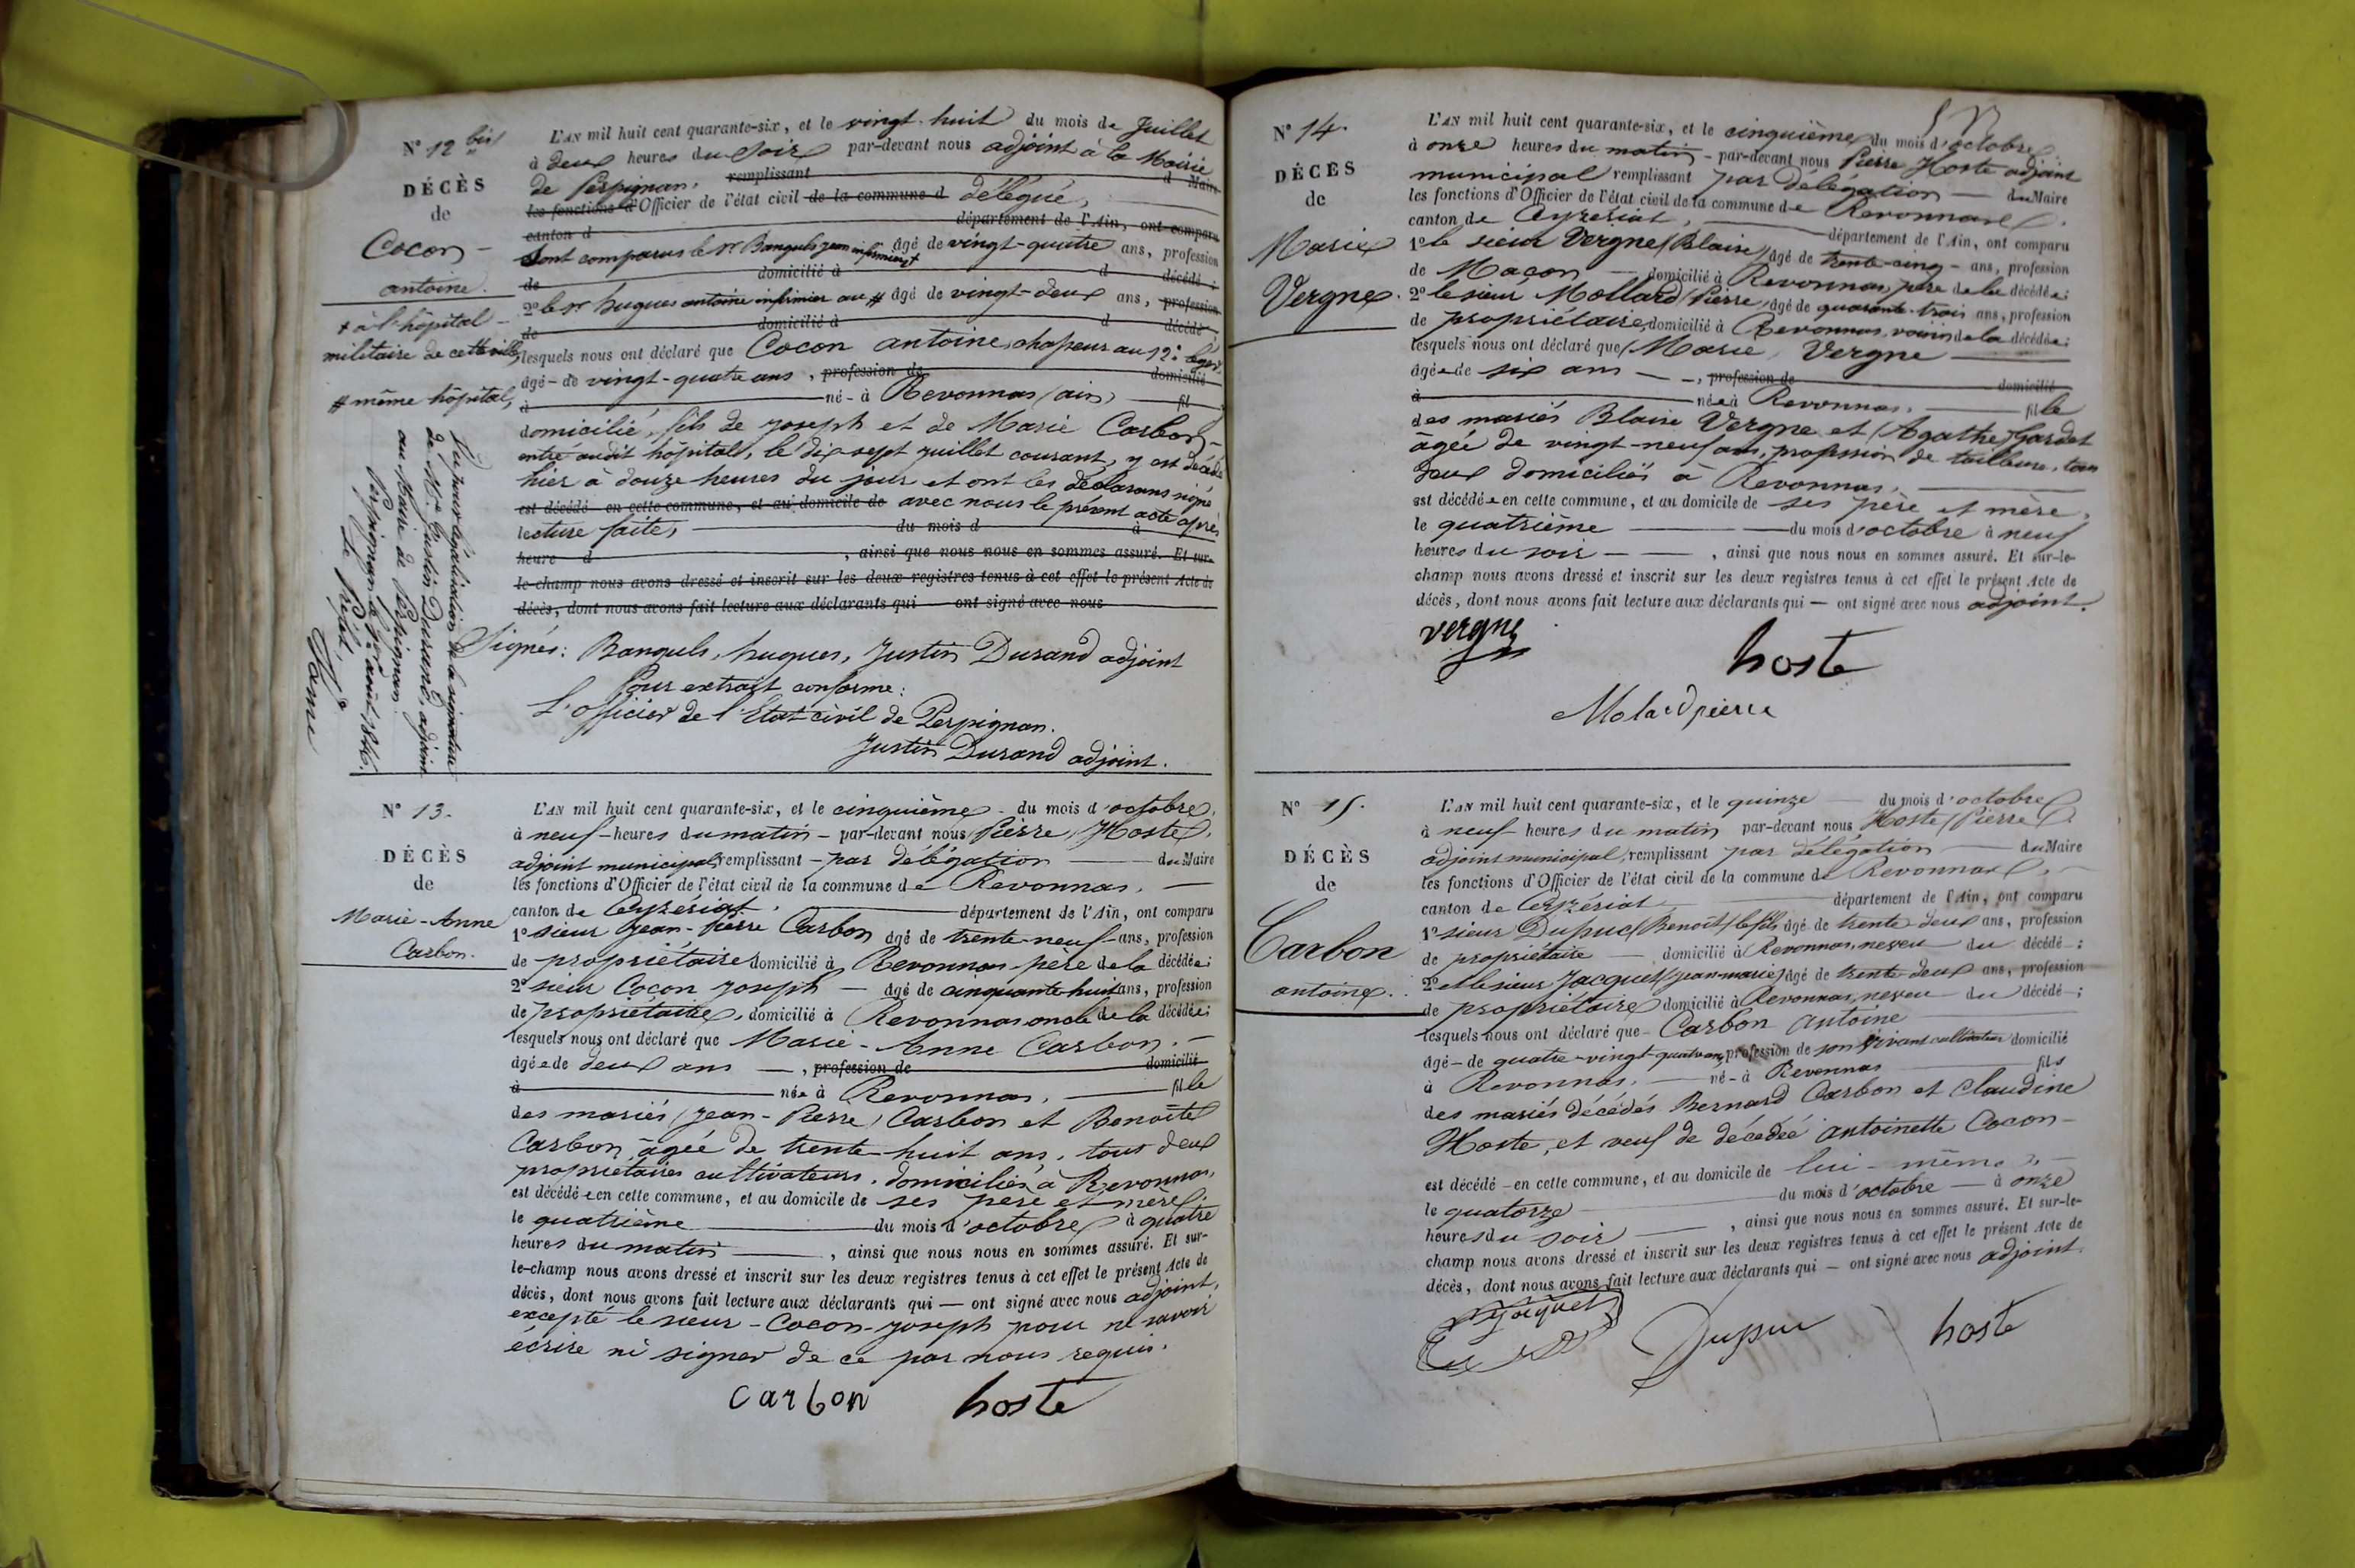 N° 12 bis
DÉCÈS
de
Cocon
antoine.
+ à l'hôpital
militaire de cette ville,
# même hôpital,
Vu pour légalisation de la signature
de Mr Justin Durand, adjoint
au Maire de Perpignan.
Perpignan le août 1846.
Le Préfet,
L'AN mil huit cent quarante-six, et le vingt-huit du mois de Juillet
à deux heures du soir par-devant nous adjoint à la Mairie
de Perpignan, remplissant d Maire
les fonctions d'Officier de l'état civil de la commune d délégué,
canton d département de l'Ain, ont comparu
Sont comparus le Sr Banquls jean infirmier + âgé de vingt-quatre ans, profession
de domicilié à d décédé;
2° le Sr hugues antoine infirmier au # âgé de vingt-deux ans, profession
de domicilié à d décédé
lesquels nous ont déclaré que Cocon antoine, chasseur au 12e léger
âgé de vingt-quatre ans, profession de domicilié
à né à Revonnas (ain) fil
domicilié, fils de joseph et de Marie Carbon
entré audit hôpital, le dix-sept juillet courant, y est décédé
hier à douze heures du jour et ont les déclarans signé
est décédé en cette commune, et au domicile de avec nous le présent acte après
lecture faite, du mois d à
heure d , ainsi que nous nous en sommes assuré. Et sur-
le-champ nous avons dressé et inscrit sur les deux registres tenus à cet effet le présent Acte de
décès, dont nous avons fait lecture aux déclarants qui ont signé avec nous
Signés: Banquls, hugues, Justin Durand adjoint
Pour extrait conforme:
L'officier de l'Etat civil de Perpignan.
Justin Durand adjoint.
N° 13.
DÉCÈS
de
Marie-Anne
Carbon.
L'AN mil huit cent quarante-six, et le cinquième du mois d'octobre,
à neuf heures du matin par-devant nous Pierre Hoste,
adjoint municipal, remplissant par délégation du Maire
les fonctions d'Officier de l'état civil de la commune de Revonnas,
canton de Ceyzériat, département de l'Ain, ont comparu
1° sieur Jean-Pierre Carbon âgé de trente-neuf ans, profession
de propriétaire domicilié à Revonnas père de la décédée;
2° sieur Cocon joseph âgé de cinquante huit ans, profession
de propriétaire, domicilié à Revonnas oncle de la décédée;
lesquels nous ont déclaré que Marie-Anne Carbon.
âgée de deux ans, profession de domicilié
à née à Revonnas, fille
des mariés (Jean-Pierre) Carbon et Benoîte
Carbon, âgée de trente-huit ans, tous deux
propriétaires cultivateurs, domiciliés à Revonnas,
est décédée en cette commune, et au domicile de ses père et mère,
le quatrième du mois d'octobre à quatre
heures du matin, ainsi que nous nous en sommes assuré. Et sur-
le-champ nous avons dressé et inscrit sur les deux registres tenus à cet effet le présent Acte de
décès, dont nous avons fait lecture aux déclarants qui — ont signé avec nous adjoint,
excepté le sieur Cocon joseph pour ne savoir
écrire ni signer de ce par nous requis.
carbon hoste
N° 14.
DÉCÈS
de
Marie
Vergne.
L'AN mil huit cent quarante-six, et le cinquième du mois d'octobre
à onze heures du matin par-devant nous Pierre Hoste adjoint
municipal remplissant par délégation du Maire
les fonctions d'Officier de l'état civil de la commune de Revonnas
canton de Ceyzeriat, département de l'Ain, ont comparu
1° le sieur Vergne (Blaise) âgé de trente-cinq ans, profession
de Maçon domicilié à Revonnas, père de la décédée;
2° le sieur Mollard (Pierre) âgé de quarante-trois ans, profession
de propriétaire, domicilié à Revonnas, voisin de la décédée;
lesquels nous ont déclaré que (Marie) Vergne
âgée de six ans, profession de domicilié
à née à Revonnas, fille
des mariés Blaise Vergne et (Agathe) Gardet
âgée de vingt-neuf ans, profession de tailleuse, tous
deux domiciliés à Revonnas,
est décédée en cette commune, et au domicile de ses père et mère,
le quatrième du mois d'octobre à neuf
heures du soir, ainsi que nous nous en sommes assuré. Et sur-le-
champ nous avons dressé et inscrit sur les deux registres tenus à cet effet le présent Acte de
décès, dont nous avons fait lecture aux déclarants qui — ont signé avec nous adjoint.
vergne
hoste
Molard pierre
N° 15.
DÉCÈS
de
Carbon
antoine.
L'AN mil huit cent quarante-six, et le quinze du mois d'octobre
à neuf heures du matin par-devant nous Hoste (Pierre)
adjoint municipal, remplissant par délégation du Maire
les fonctions d'Officier de l'état civil de la commune de Revonnas,
canton de Ceyzériat département de l'Ain, ont comparu
1° sieur Dupuc (Benoit) le fils âgé de trente deux ans, profession
de propriétaire domicilié à Revonnas, neveu du décédé;
2° et le sieur Jacquet (jean-marie) âgé de trente deux ans, profession
de propriétaire domicilié à Revonnas, neveu du décédé;
lesquels nous ont déclaré que Carbon Antoine
âgé de quatre-vingt-quatre ans, profession de son vivant cultivateur domicilié
à Revonnas, né à Revonnas fils
des mariés décédés Bernard Carbon et Claudine
Hoste, et veuf de décédée Antoinette Cocon
est décédé en cette commune, et au domicile de lui-même,
le quatorze du mois d'octobre à onze
heures du soir, ainsi que nous nous en sommes assuré. Et sur-le-
champ nous avons dressé et inscrit sur les deux registres tenus à cet effet le présent Acte de
décès, dont nous avons fait lecture aux déclarants qui — ont signé avec nous adjoint.
Jacquet
Dupuc hoste